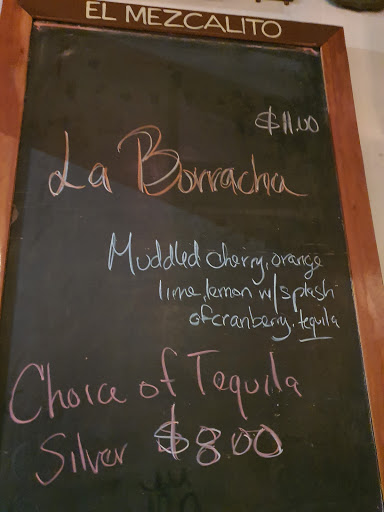 EL MEZCALITO
$11.00
La Borracha
Muddled cherry, orange
lime, lemon w/splash
of cranberry, tequila
Choice of Tequila
Silver $8.00